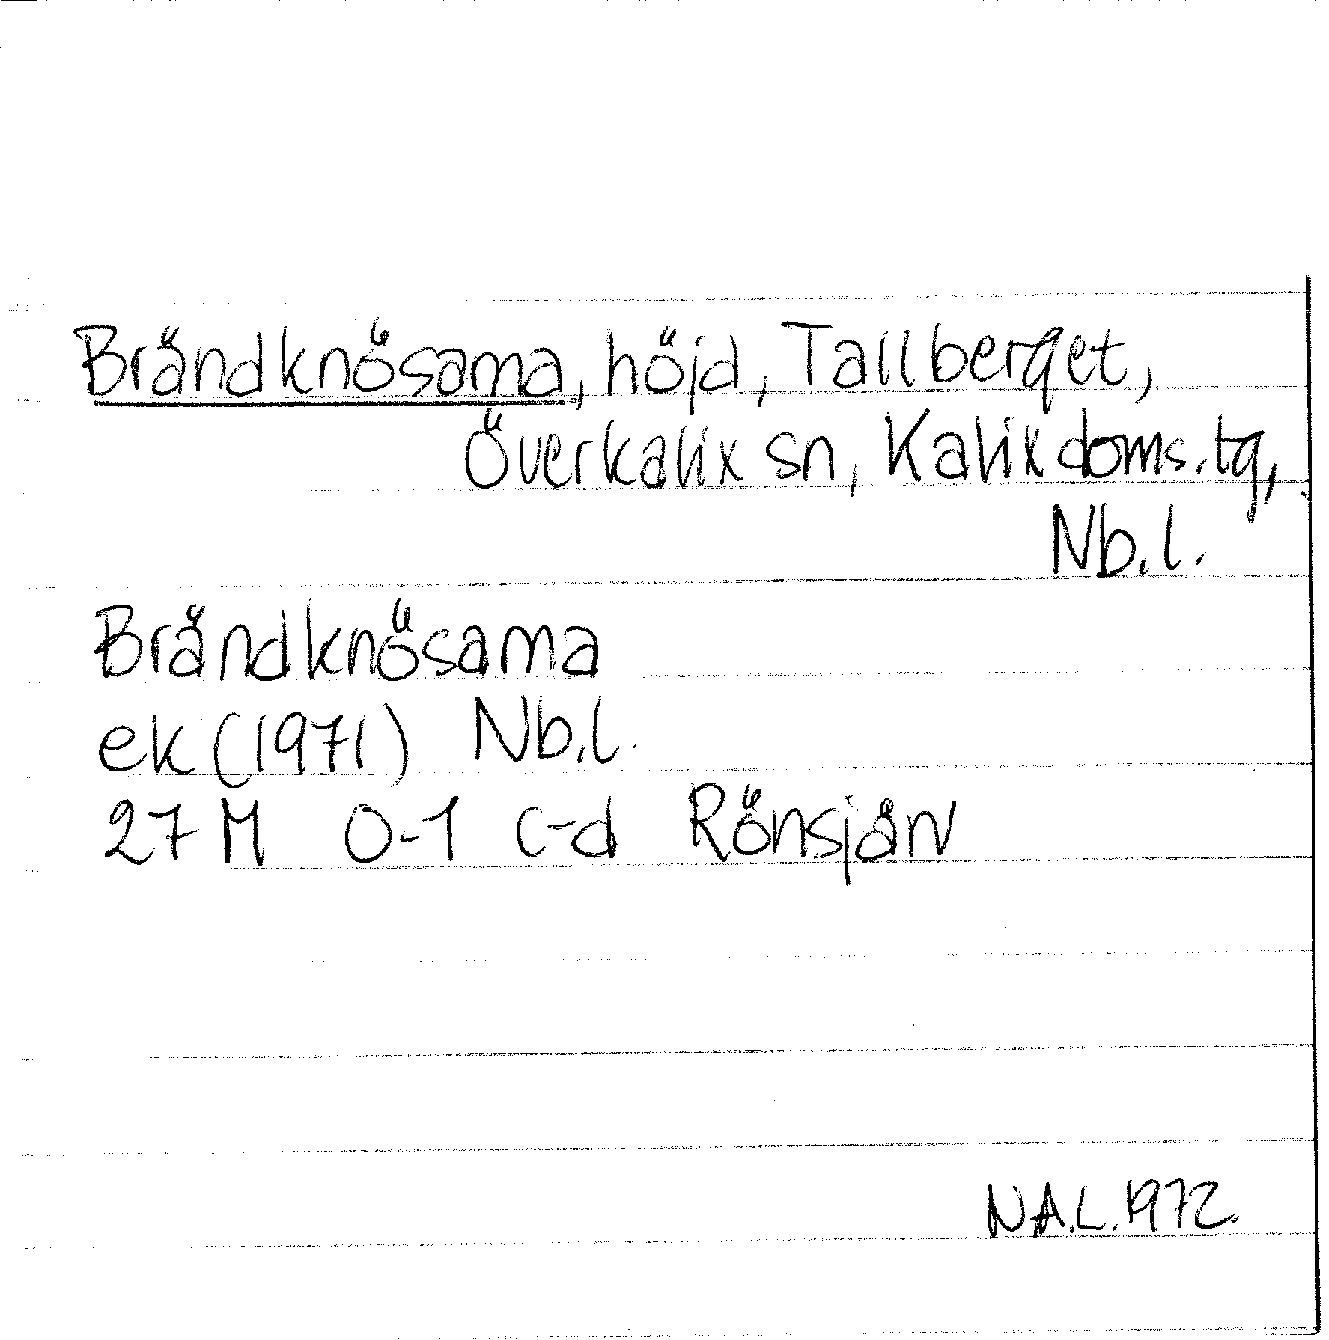 Brändknösarna, höjd, Tallberget,
Överkalix sn, Kalix doms.tg,
Nb.l.
Brändknösarna
ek (1971) Nb.l.
27 M 0-1 c-d Rönsjän
N.A.L. 1972.